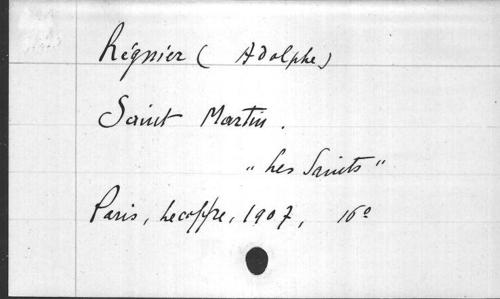 Régnier (Adolphe)
Saint Martin.
"Les Saints"
Paris, Lecoffre, 1907, 16º